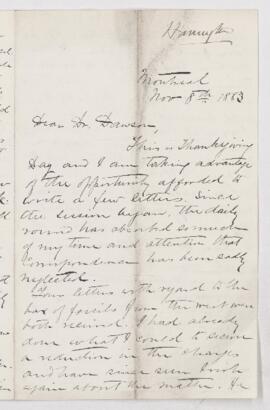 Harrington
Montreal
Nov 8th 1883
Dear Dr. Dawson,
This is Thanksgiving
Day and I am taking advantage
of the opportunity afforded to
write a few letters. Since
the session began, the daily
round has absorbed so much
of my time and attention that
correspondence has been sadly
neglected.
Your letters with regard to the
box of fossils from the west were
both received. I had already
done what I could to secure
a reduction in the charges
and have since seen
again about the matter. He